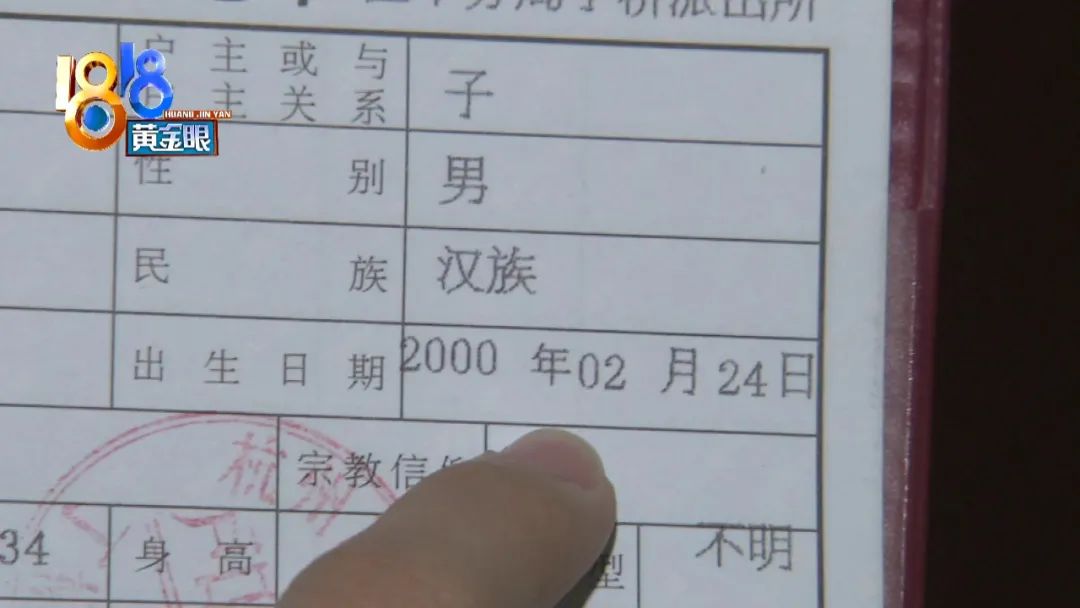 派出所
1818
HUANG JIN YAN
黄金眼
户主或与
户主关系
子
性别
男
民族
汉族
出生日期
2000 年02 月24日
宗教信
杭
34
身高
型
不明